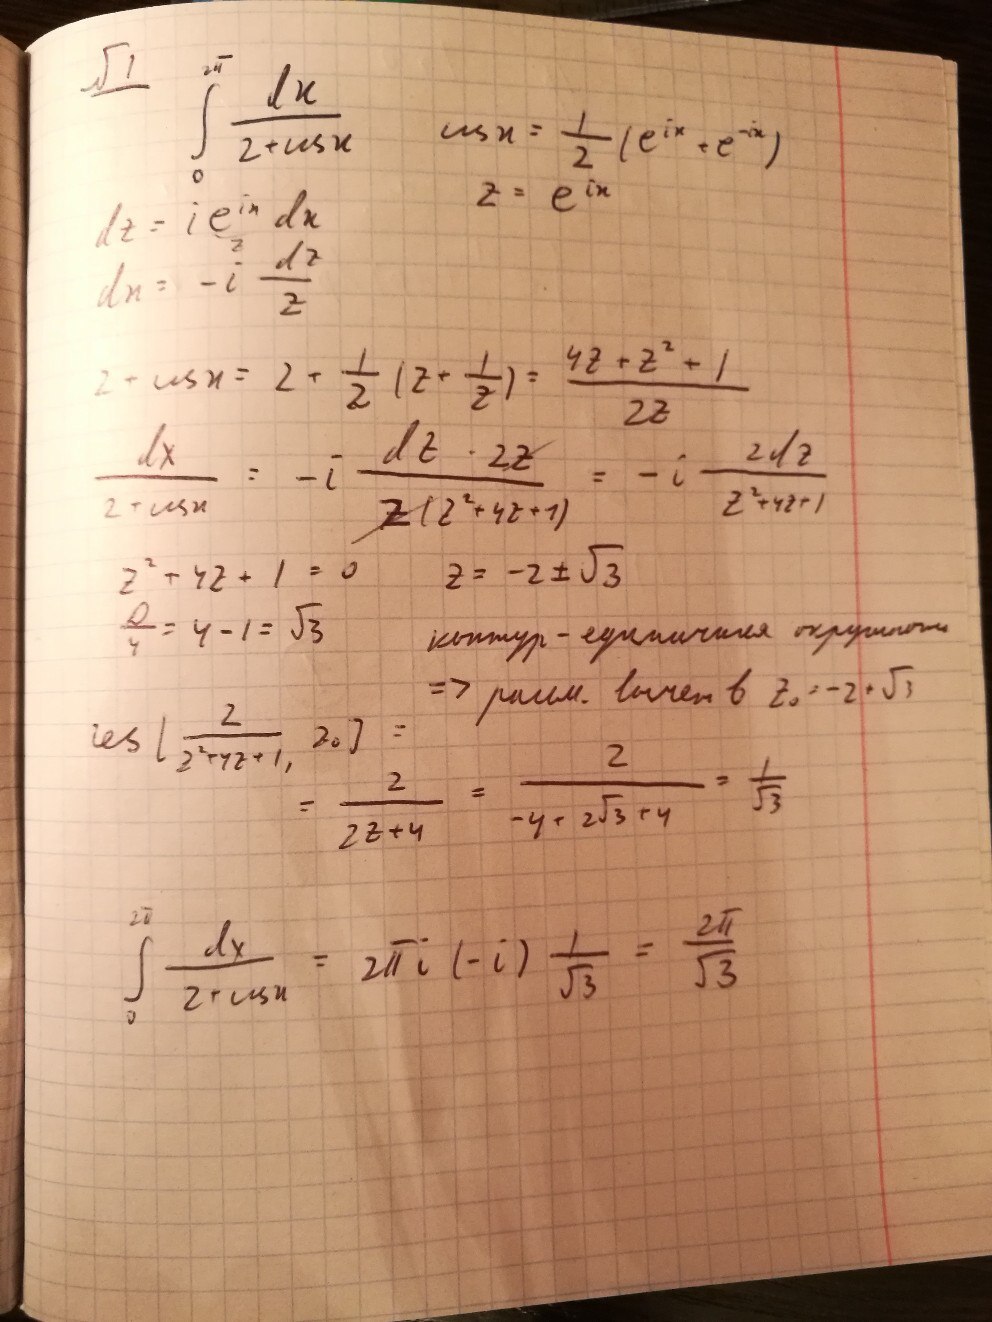 √1
∫₀^{2π} dx / (2+cosx)    cosx = 1/2 (e^{ix} + e^{-ix})
z = e^{ix}
dz = i e^{ix} dx
z
dx = -i dz/z
2 + cosx = 2 + 1/2 (z + 1/z) = (4z + z² + 1) / 2z
dx / (2+cosx) = -i (dz · 2z) / (z(z²+4z+1)) = -i 2dz / (z²+4z+1)
z² + 4z + 1 = 0    z = -2 ± √3
D/4 = 4 - 1 = √3    контур - единичная окружность
=> рассм. вычет в z₀ = -2 + √3
res [ 2 / (z²+4z+1), z₀ ] =
= 2 / (2z+4) = 2 / (-4 + 2√3 + 4) = 1/√3
∫₀^{2π} dx / (2+cosx) = 2πi (-i) 1/√3 = 2π/√3